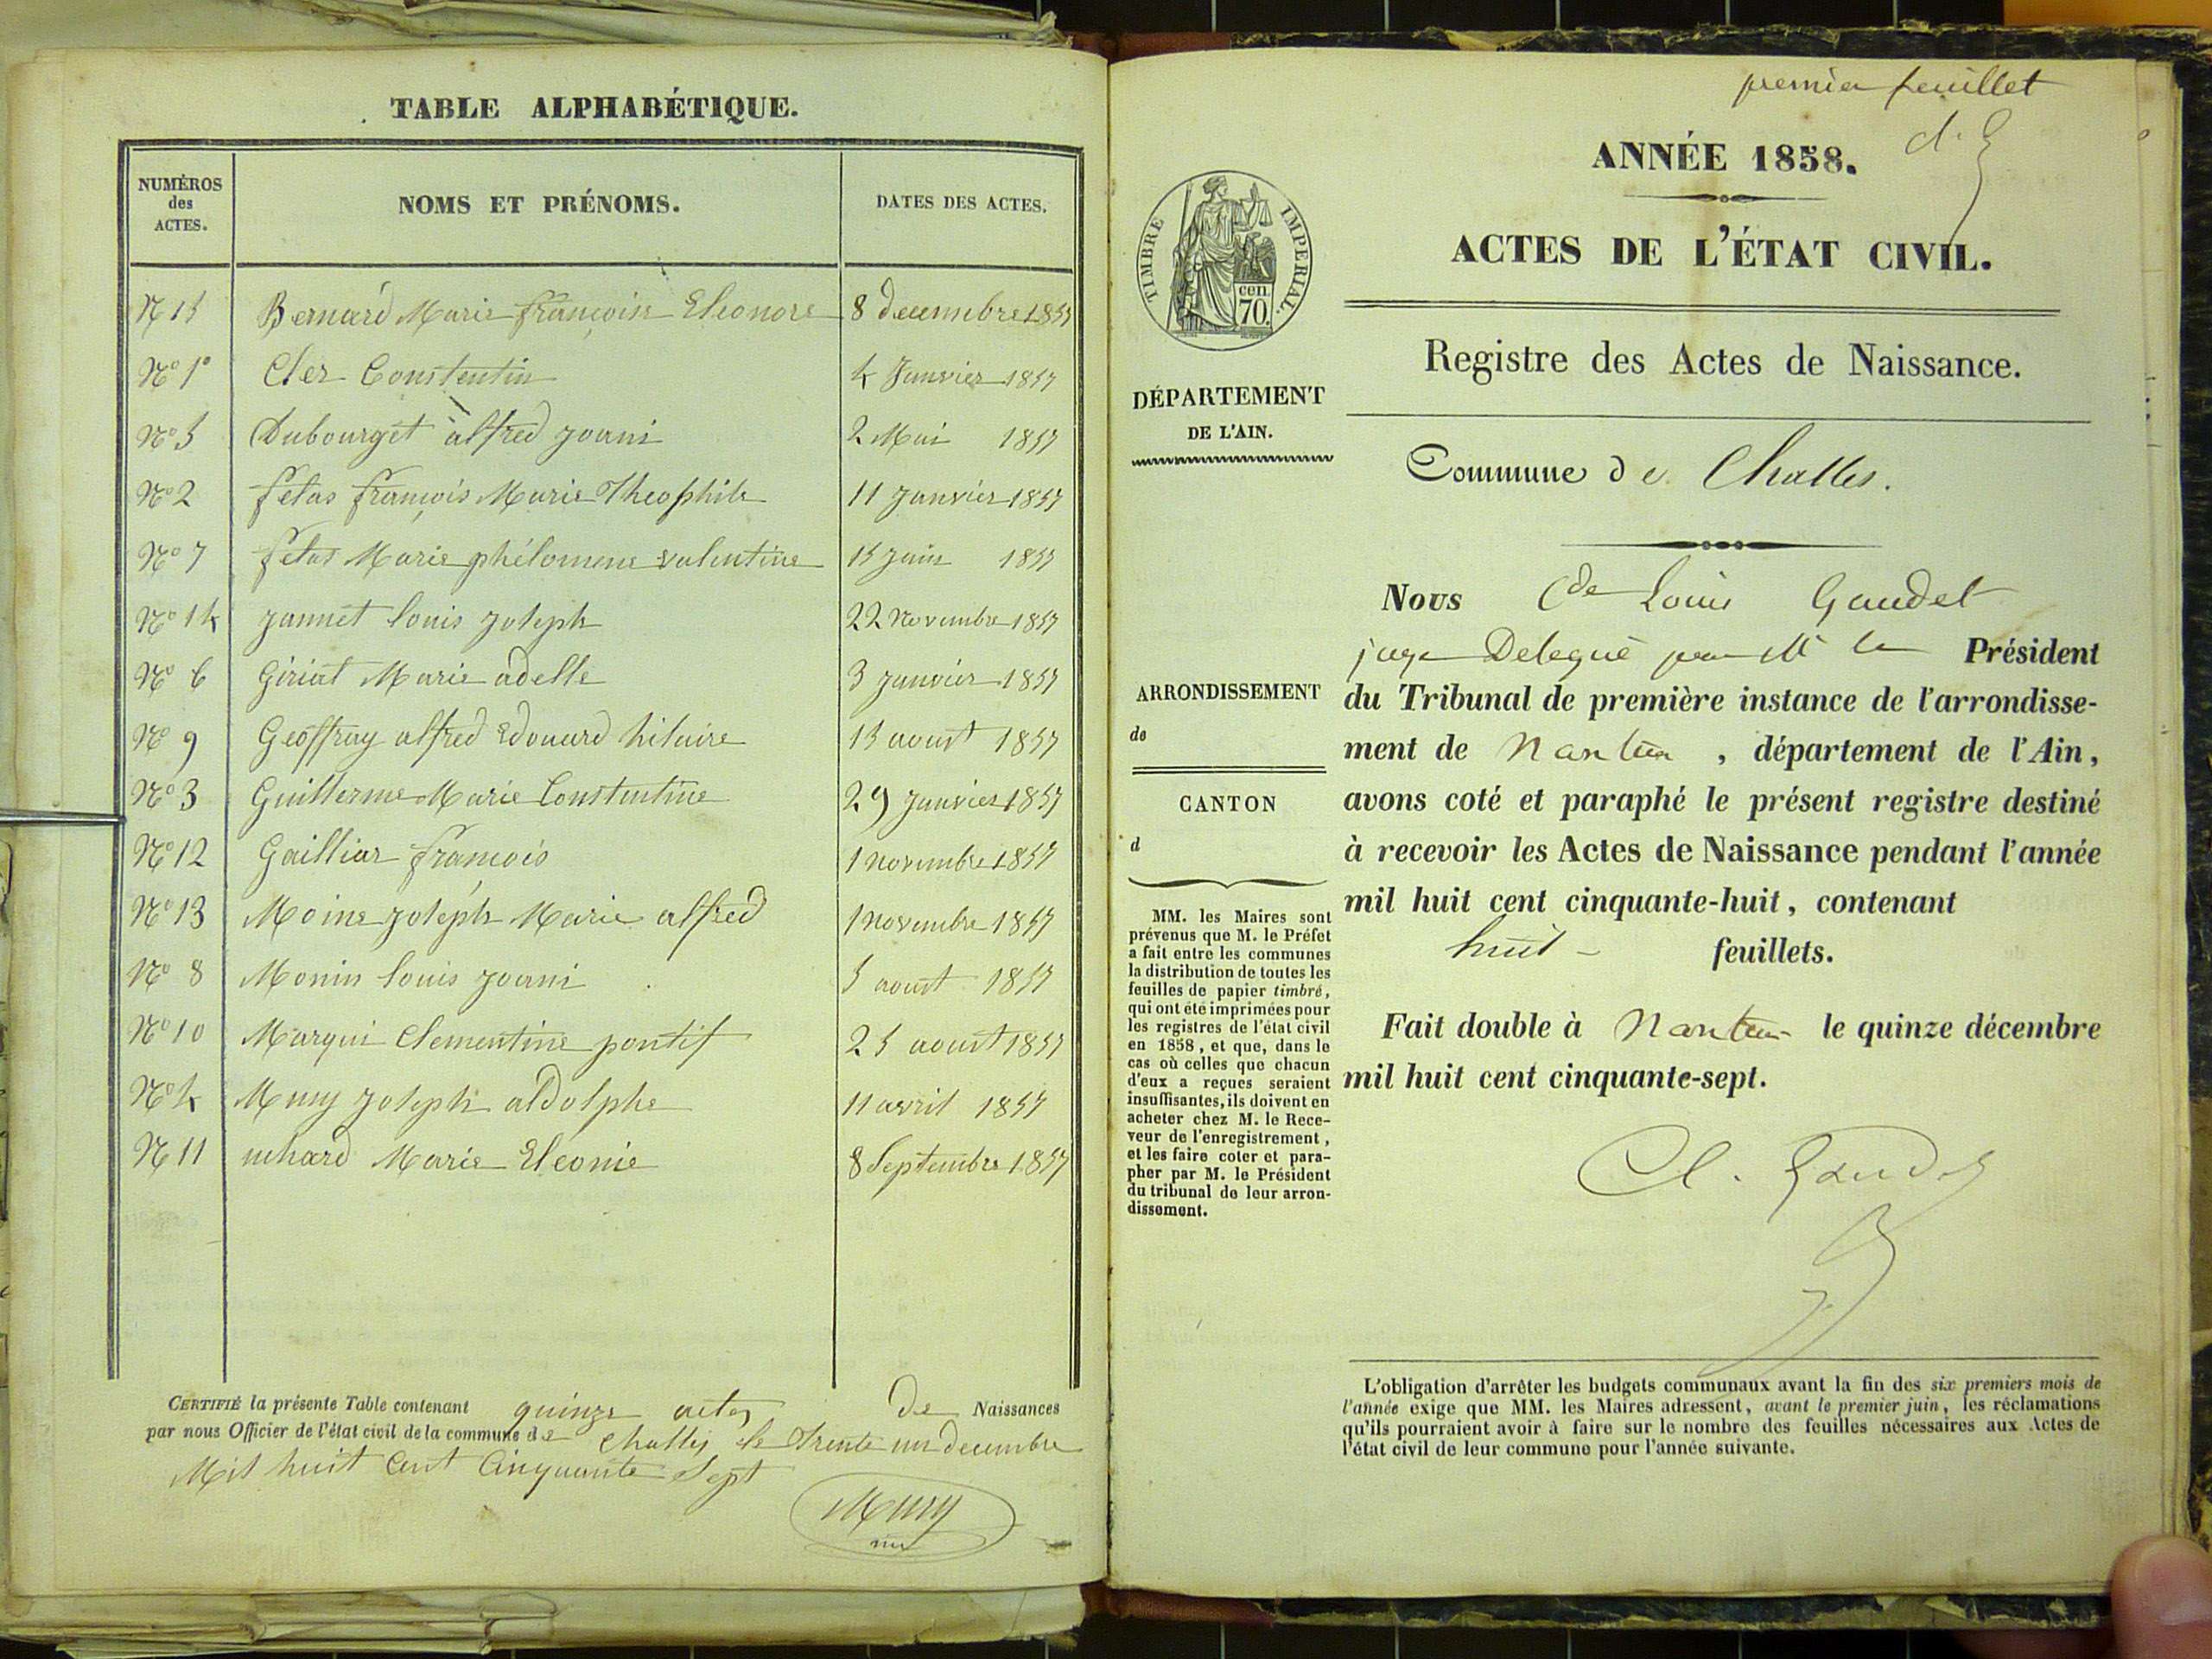 TABLE ALPHABÉTIQUE.
NUMÉROS
des
ACTES.
NOMS ET PRÉNOMS.
DATES DES ACTES.
N 15 Bernard Marie françoise Eleonore 8 decembre 1857
N° 1° Cler Constentin 4 Janvier 1857
N° 5 Dubourget alfred joani 2 Mai 1857
N° 2 fetas françois Marie Theophile 11 janvier 1857
N° 7 fetas Marie phélomene valentine 15 juin 1857
N° 14 jannet louis joseph 22 novembre 1857
N° 6 Giriat Marie adelle 3 janvier 1857
N° 9 Geoffray alfred Edouard hilaire 15 aoust 1857
N° 3 Guillerme Marie Constentine 29 janvier 1857
N° 12 Gailliar françois 1 novembre 1857
N° 13 Moine joseph Marie alfred 1 novembre 1857
N° 8 Monin louis joani 5 aoust 1857
N° 10 Marqui Clementine pontif 25 aoust 1857
N° 4 Mury joseph aldolphe 11 avril 1857
N 11 Marie Eleonie 8 Septembre 1857
CERTIFIÉ la présente Table contenant quinze actes de Naissances
par nous Officier de l'état civil de la commune de Challes le trente un decembre
Mil huit Cent Cinquante Sept
Mury
premier feuillet
ANNÉE 1858.
ACTES DE L'ÉTAT CIVIL.
TIMBRE IMPERIAL.
cen.
70.
Registre des Actes de Naissance.
DÉPARTEMENT
DE L'AIN.
Commune de Challes.
ARRONDISSEMENT
de
CANTON
d
MM. les Maires sont
prévenus que M. le Préfet
a fait entre les communes
la distribution de toutes les
feuilles de papier timbré,
qui ont été imprimées pour
les registres de l'état civil
en 1858, et que, dans le
cas où celles que chacun
d'eux a reçues seraient
insuffisantes, ils doivent en
acheter chez M. le Rece-
veur de l'enregistrement,
et les faire coter et para-
pher par M. le Président
du tribunal de leur arron-
dissement.
Nous Cde Louis Gaudet
juge Delegué par M le Président
du Tribunal de première instance de l'arrondisse-
ment de Nantua, département de l'Ain,
avons coté et paraphé le présent registre destiné
à recevoir les Actes de Naissance pendant l'année
mil huit cent cinquante-huit, contenant
huit - feuillets.
Fait double à Nantua le quinze décembre
mil huit cent cinquante-sept.
Cl. Gaudet
L'obligation d'arrêter les budgets communaux avant la fin des six premiers mois de
l'année exige que MM. les Maires adressent, avant le premier juin, les réclamations
qu'ils pourraient avoir à faire sur le nombre des feuilles nécessaires aux Actes de
l'état civil de leur commune pour l'année suivante.